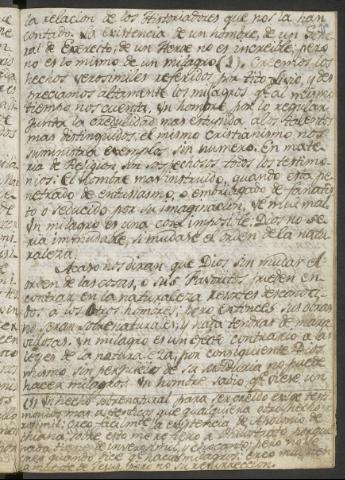 la relacion de los Historiadores que nos la han
contado. La existencia de un hombre, de un Gene
ral de Exercito, de un Heroe no es increible; pero
no es lo mismo de un milagro (1). Creemos los
hechos verosimiles referidos por Tito Livio, y des
preciamos altamente los milagros qe. al mismo
tiempo nos cuenta. Un hombre por lo regular
junta la credulidad mas estupida a los talentos
mas distinguidos: el mismo cristianismo nos
suministra exemplos sin numero. En mate
ria de Religion son sospechosos todos los testimo
nios: El hombre mas instruido, quando esta pe
netrado de entusiasmo, o embriagado de fanatis
mo o seducido por su imaginacion, ve mui mal.
Un milagro es una cosa imposible: Dios no se
ria inmudable, si mudase el orden de la natu
raleza.
Acaso nos diran que Dios sin mudar el
orden de las cosas, o sus Favoritos pueden en
contrar en la naturaleza resortes desconoci
dos a los otros hombres; pero entonces sus obras
no seran sobrenaturales, y nada tendran de mara
villosas. Un milagro es un efecto contrario a las
leyes de la naturaleza, por consiguiente Dios
mismo sin perjuicio de su sabiduria no puede
hacer milagros. Un hombre sabio, qe. viese un
(1) Un hecho sobrenatural para ser creido exige testi
monios mas autenticos que qualquiera otro hecho ve
rosimil: creo facilmte. la existencia de Apolonio de
Thiana, sobre esto me refiero a Filostrato, porque
nada tiene de inverosimil su existencia; pero no le
creo quando dice qe. hacia milagros: creo mui bien
la muerte de Jesus, pero no su resurreccion.